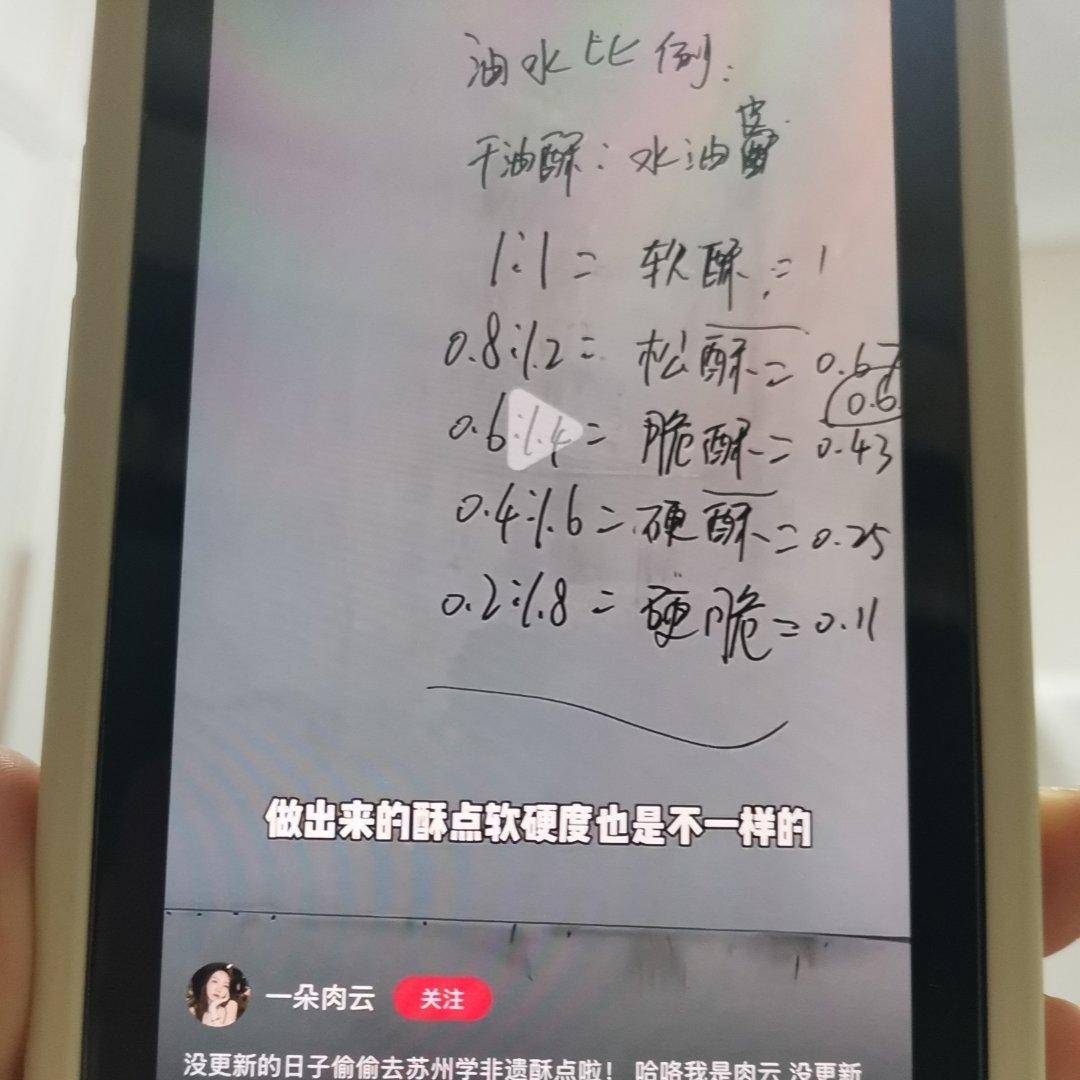 油水比例:
干油酥:水油皮
1:1= 软酥 = 1
0.8:1.2= 松酥= 0.67
0.6
0.6:1.4= 脆酥= 0.43
0.4:1.6= 硬酥= 0.25
0.2:1.8= 硬脆= 0.11
做出来的酥点软硬度也是不一样的
一朵肉云 关注
没更新的日子偷偷去苏州学非遗酥点啦! 哈咯我是肉云 没更新